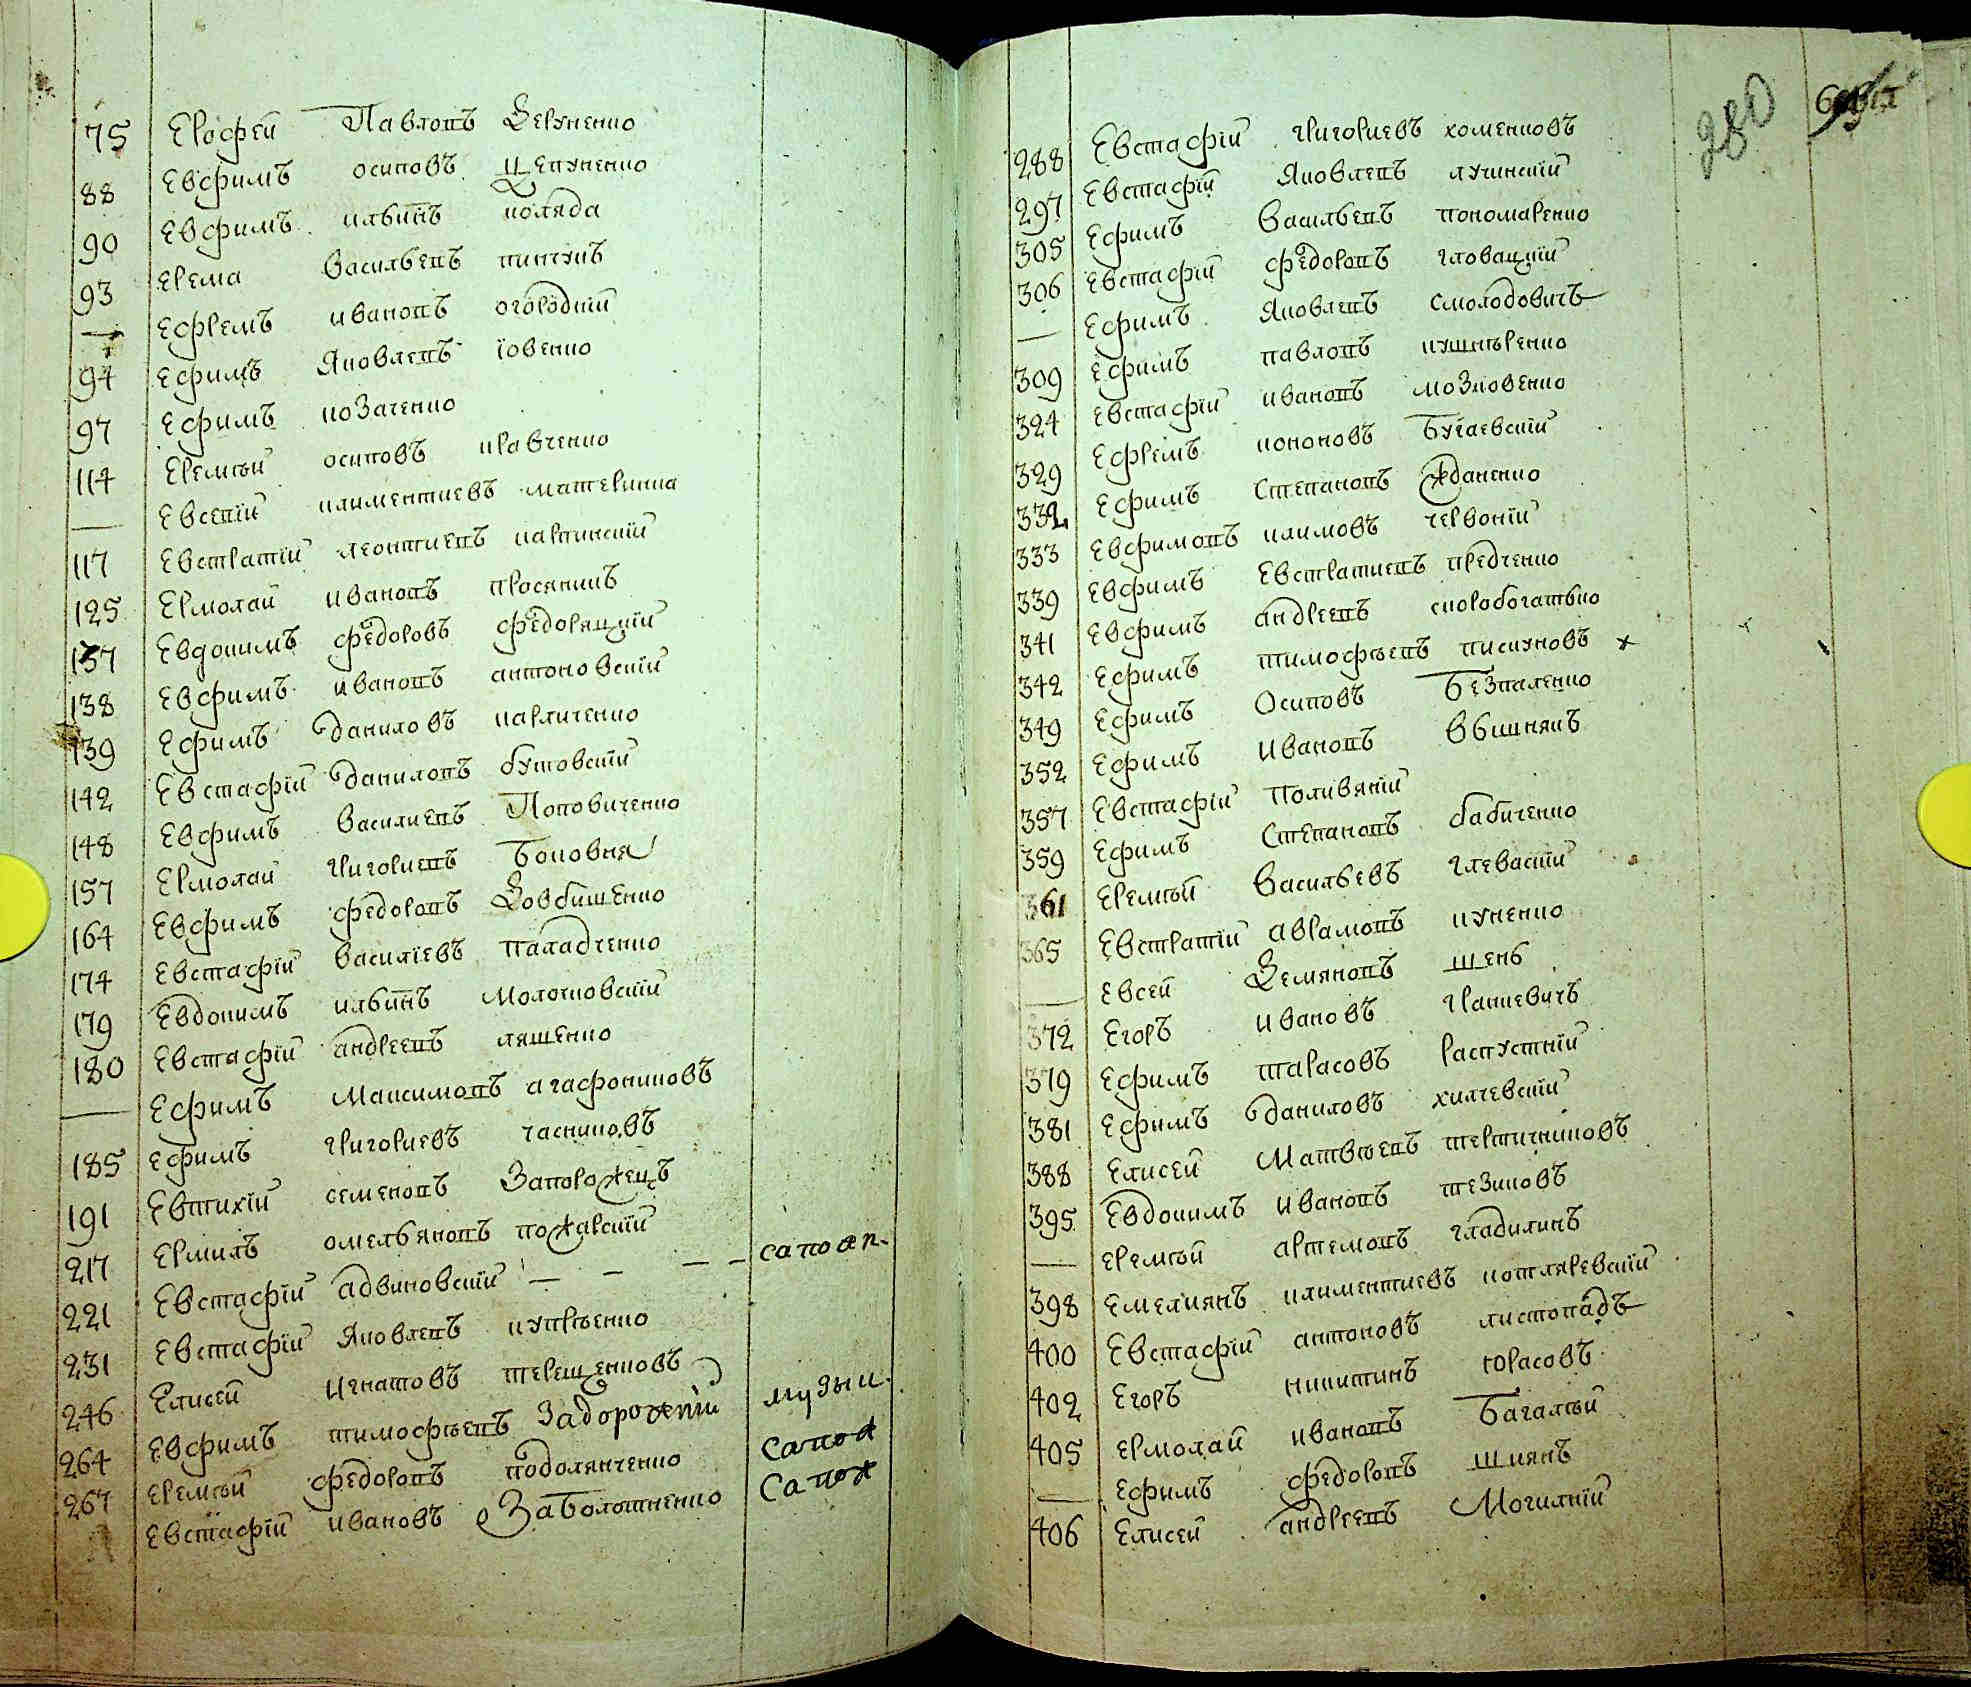 75 Ерофей Павловъ Зерученко
88 Евфимъ осиповъ щепученко
90 Евфимъ ильинъ коляда
93 Ерема Васильевъ пинчукъ
— Ефремъ ивановъ огородній
94 Ефимъ Яковлевъ іовенко
97 Ефимъ козаченко
114 Еремѣй осиповъ кравченко
— Евсевій климентиевъ матерынка
117 Евстратій леонтиевъ карпинскій
125 Ермолай ивановъ просяникъ
137 Евдокимъ федоровъ федоряцкій
138 Евфимъ ивановъ антоновскій
139 Ефимъ даниловъ карпиченко
142 Евстафій даниловъ бутовскій
148 Евфимъ василиевъ Поповиченко
157 Ермолай григориевъ Боковня
164 Евфимъ федоровъ Зовбищенко
174 Евстафій василіевъ паладченко
179 Евдокимъ ильинъ молочковскій
180 Евстафій андреевъ лященко
— Ефимъ Максимовъ агафониковъ
185 ефимъ григориевъ часниковъ
191 Евтихій семеновъ Запорожецъ
217 Ермилъ омельяновъ пожарскій
221 Евстафій адвиновскій — — — — сапож.
231 Евстафій Яковлевъ купрѣенко
246 Елисей игнатовъ терещенковъ
264 Евфимъ тимофѣевъ Задорожній музык.
267 Еремѣй федоровъ подолянченко сапож
Евстафій ивановъ Заболотненко сапож
280
288 Евстафій григориевъ хоменковъ
297 Евстафій Яковлевъ лучинскій
305 Ефимъ Васильевъ пономаренко
306 Евстафій федоровъ гловацкій
— Ефимъ Яковлевъ Смолодовичъ
309 Ефимъ павловъ кушнѣренко
324 Евстафій ивановъ мозковенко
329 Ефремъ кононовъ Бугаевскій
332 Ефимъ Степановъ жданенко
333 Евфимовъ климовъ червоній
339 Евфимъ Евстратиевъ предченко
341 Евфимъ андреевъ скоробогатько
342 Ефимъ тимофѣевъ пискуновъ х
349 Ефимъ Осиповъ Безпаленко
352 Ефимъ ивановъ Вышнякъ
357 Евстафій Поливяній
359 Ефимъ Степановъ бабиченко
361 Еремѣй Васильевъ глеваскій
365 Евстратій аврамовъ куненко
— Евсей Земяновъ шень
372 Егоръ ивановъ гранкевичъ
379 Ефимъ тарасовъ распустній
381 Ефимъ даниловъ хилчевскій
388 Елисей Матвѣевъ терпичниковъ
395 Евдокимъ ивановъ тезиковъ
— еремѣй артемовъ гладилинъ
398 Емелиянъ климентиевъ котляревскій
400 Евстафій антоновъ листопадъ
402 Егоръ никитинъ юрасовъ
405 ермолай ивановъ Багалѣй
— ефимъ федоровъ шиянъ
406 Елисей андреевъ Могилній